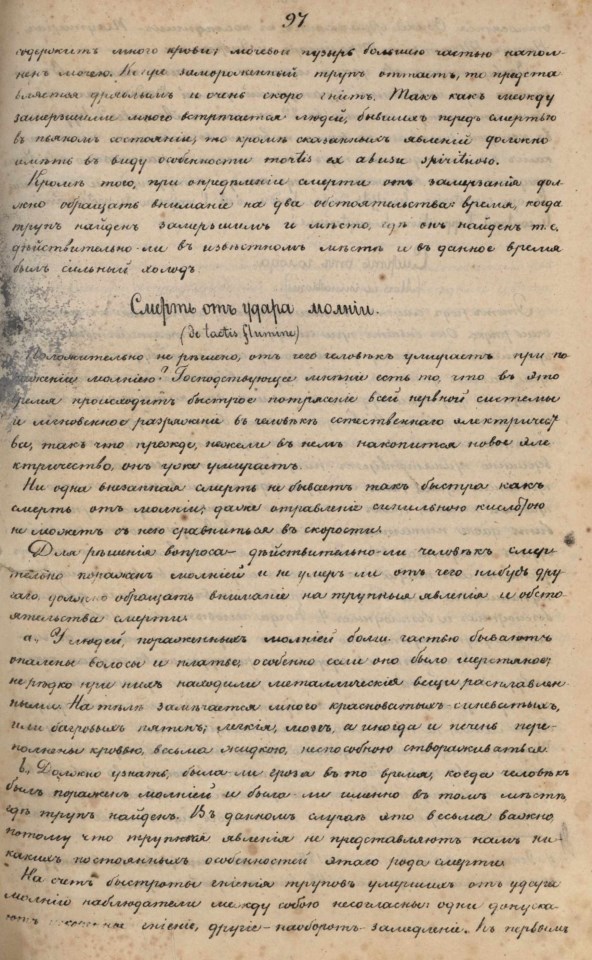 97
содержитъ много крови; мочевой пузырь большею частью напол-
ненъ мочею. Когда замороженный трупъ оттаетъ, то предста
вляется дряблымъ и очень скоро гніетъ. Такъ какъ между
замерзшими много встрѣчается людей, бывшихъ передъ смертью
въ пьяномъ состояніи, то кромѣ сказанныхъ явленій должно
имѣть въ виду особенности mortis ex abusu spirituoso.
Кромѣ того, при опредѣленіи смерти отъ замерзанія дол-
жно обращать вниманіе на два обстоятельства: время, когда
трупъ найденъ замерзшимъ и мѣсто, гдѣ онъ найденъ т.е.
дѣйствительно-ли въ извѣстномъ мѣстѣ и въ данное время
былъ сильный холодъ.
Смерть отъ удара молніи.
(de tactis flumine)
Положительно не рѣшено, отъ чего человѣкъ умираетъ при по
раженіи молніею? Господствующее мнѣніе есть то, что въ это
время происходитъ быстрое потрясеніе всей нервной системы
и мгновенное разряженіе въ человѣкѣ естественнаго электричес
ва, такъ что прежде, нежели въ немъ накопится новое эле
ктричество, онъ уже умираетъ.
Ни одна внезапная смерть не бываетъ такъ быстра какъ
смерть отъ молніи; даже отравленіе синильною кислотою
не можетъ съ нею сравниться въ скорости.
Для рѣшенія вопроса дѣйствительно-ли человѣкъ смер-
тельно пораженъ молніей и не умеръ ли отъ чего нибудь дру
гаго должно обращать вниманіе на трупныя явленія и обсто-
ятельства смерти.
а. У людей, пораженныхъ молніей больш. частью бываютъ
опалены волосы и платье; особенно если оно было шерстяное;
нерѣдко при нихъ находили металлическія вещи расплавлен-
ными. На тѣлѣ замѣчается много красноватыхъ-синеватыхъ,
или багровыхъ пятенъ; легкія, мозгъ, а иногда и печень пере-
полнены кровью, весьма жидкою, неспособною створаживаться.
b. Должно узнать, была ли гроза въ то время, когда человѣкъ
былъ пораженъ молніей и была ли именно въ томъ мѣстѣ
гдѣ трупъ найденъ. Въ данномъ случаѣ это весьма важно,
потому что трупныя явленія не представляютъ намъ ни-
какихъ постоянныхъ особенностей этаго рода смерти.
На счетъ быстроты гніенія труповъ умершихъ отъ удара
молніи наблюдатели между собою несогласны: одни допуска-
ютъ гніеніе, другіе-наоборотъ-замедленіе. Къ первымъ